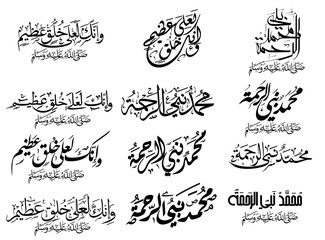 وإنك لعلى خلق عظيم
صلى الله عليه وسلم
وإنك لعلى خلق عظيم
صلى الله عليه وسلم
محمد نبي الرحمة
صلى الله عليه وسلم
وإنك لعلى خلق عظيم
صلى الله عليه وسلم
محمد نبي الرحمة
صلى الله عليه وسلم
محمد نبي الرحمة
صلى الله عليه وسلم
وإنك لعلى خلق عظيم
صلى الله عليه وسلم
محمد نبي الرحمة
صلى الله عليه وسلم
محمد نبي الرحمة
صلى الله عليه وسلم
وإنك لعلى خلق عظيم
صلى الله عليه وسلم
محمد نبي الرحمة
صلى الله عليه وسلم
محمد نبي الرحمة
صلى الله عليه وسلم